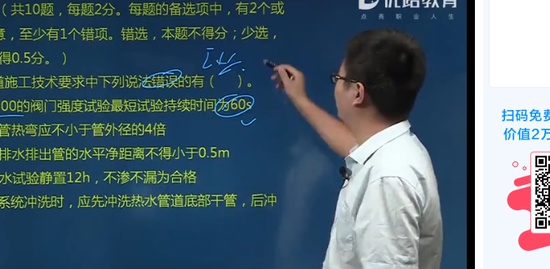 优路教育
点亮职业人生
（共10题，每题2分。每题的备选项中，有2个或
意，至少有1个错项。错选，本题不得分；少选，
得0.5分。）
道施工技术要求中下列说法错误的有（ ）。
00的阀门强度试验最短试验持续时间为60s
管热弯应不小于管外径的4倍
排水排出管的水平净距离不得小于0.5m
水试验静置12h，不渗不漏为合格
系统冲洗时，应先冲洗热水管道底部干管，后冲
扫码免费
价值2万